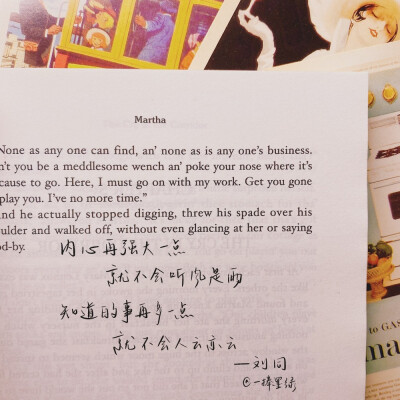 Martha
None as any one can find, an' none as is any one's business.
n't you be a meddlesome wench an' poke your nose where it's
cause to go. Here, I must go on with my work. Get you gone
play you. I've no more time."
nd he actually stopped digging, threw his spade over his
oulder and walked off, without even glancing at her or saying
od-by.
内心再强大一点
就不会听风是雨
知道的事再多一点
就不会人云亦云
—刘同
to GAS
ma